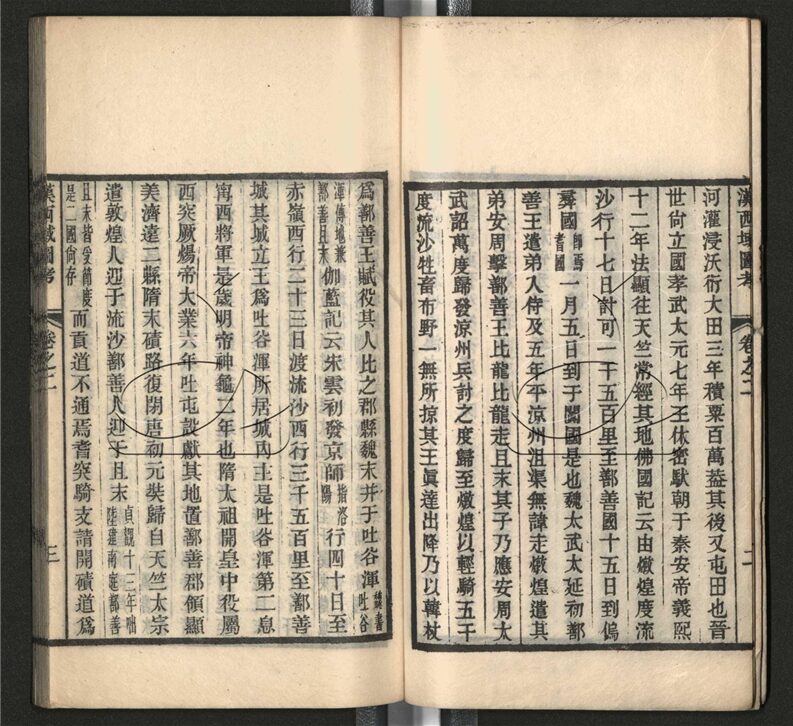 漢西域圖考 卷之二 二
河灌浸沃衍大田三年積粟百萬葢其後又屯田也晉
世尙立國孝武太元七年王休密馱朝于秦安帝義熙
十二年法顯往天竺常經其地佛國記云由燉煌度流
沙行十七日計可一千五百里至鄯善國十五日到僞
彛國卽焉耆國一月五日到于闐國是也魏太武太延初鄯
善王遣弟入侍及五年平涼州沮渠無諱走燉煌遣其
弟安周擊鄯善王比龍比龍走且末其子乃應安周太
武詔萬度歸發涼州兵討之度歸至燉煌以輕騎五千
度流沙牲畜布野一無所掠其王眞達出降乃以韓杖
爲鄯善王賦役其人比之郡縣魏末并于吐谷渾魏書吐谷
渾傳地兼鄯善且末伽藍記云宋雲初發京師指洛陽行四十日至
赤嶺西行二十三日渡流沙西行三千五百里至鄯善
城其城立王爲吐谷渾所居城內主是吐谷渾第二息
甯西將軍是歲明帝神龜二年也隋太祖開皇中役屬
西突厥煬帝大業六年吐屯設獻其地置鄯善郡領顯
美濟遠二縣隋末磧路復閉唐初元奘歸自天竺太宗
遣敦煌人迎于流沙鄯善人迎于且末貞觀十三年 陸建南庭鄯善
且末皆受節度是二國尙存而貢道不通焉耆突騎支請開磧道爲
漢西域圖考 卷之二 三